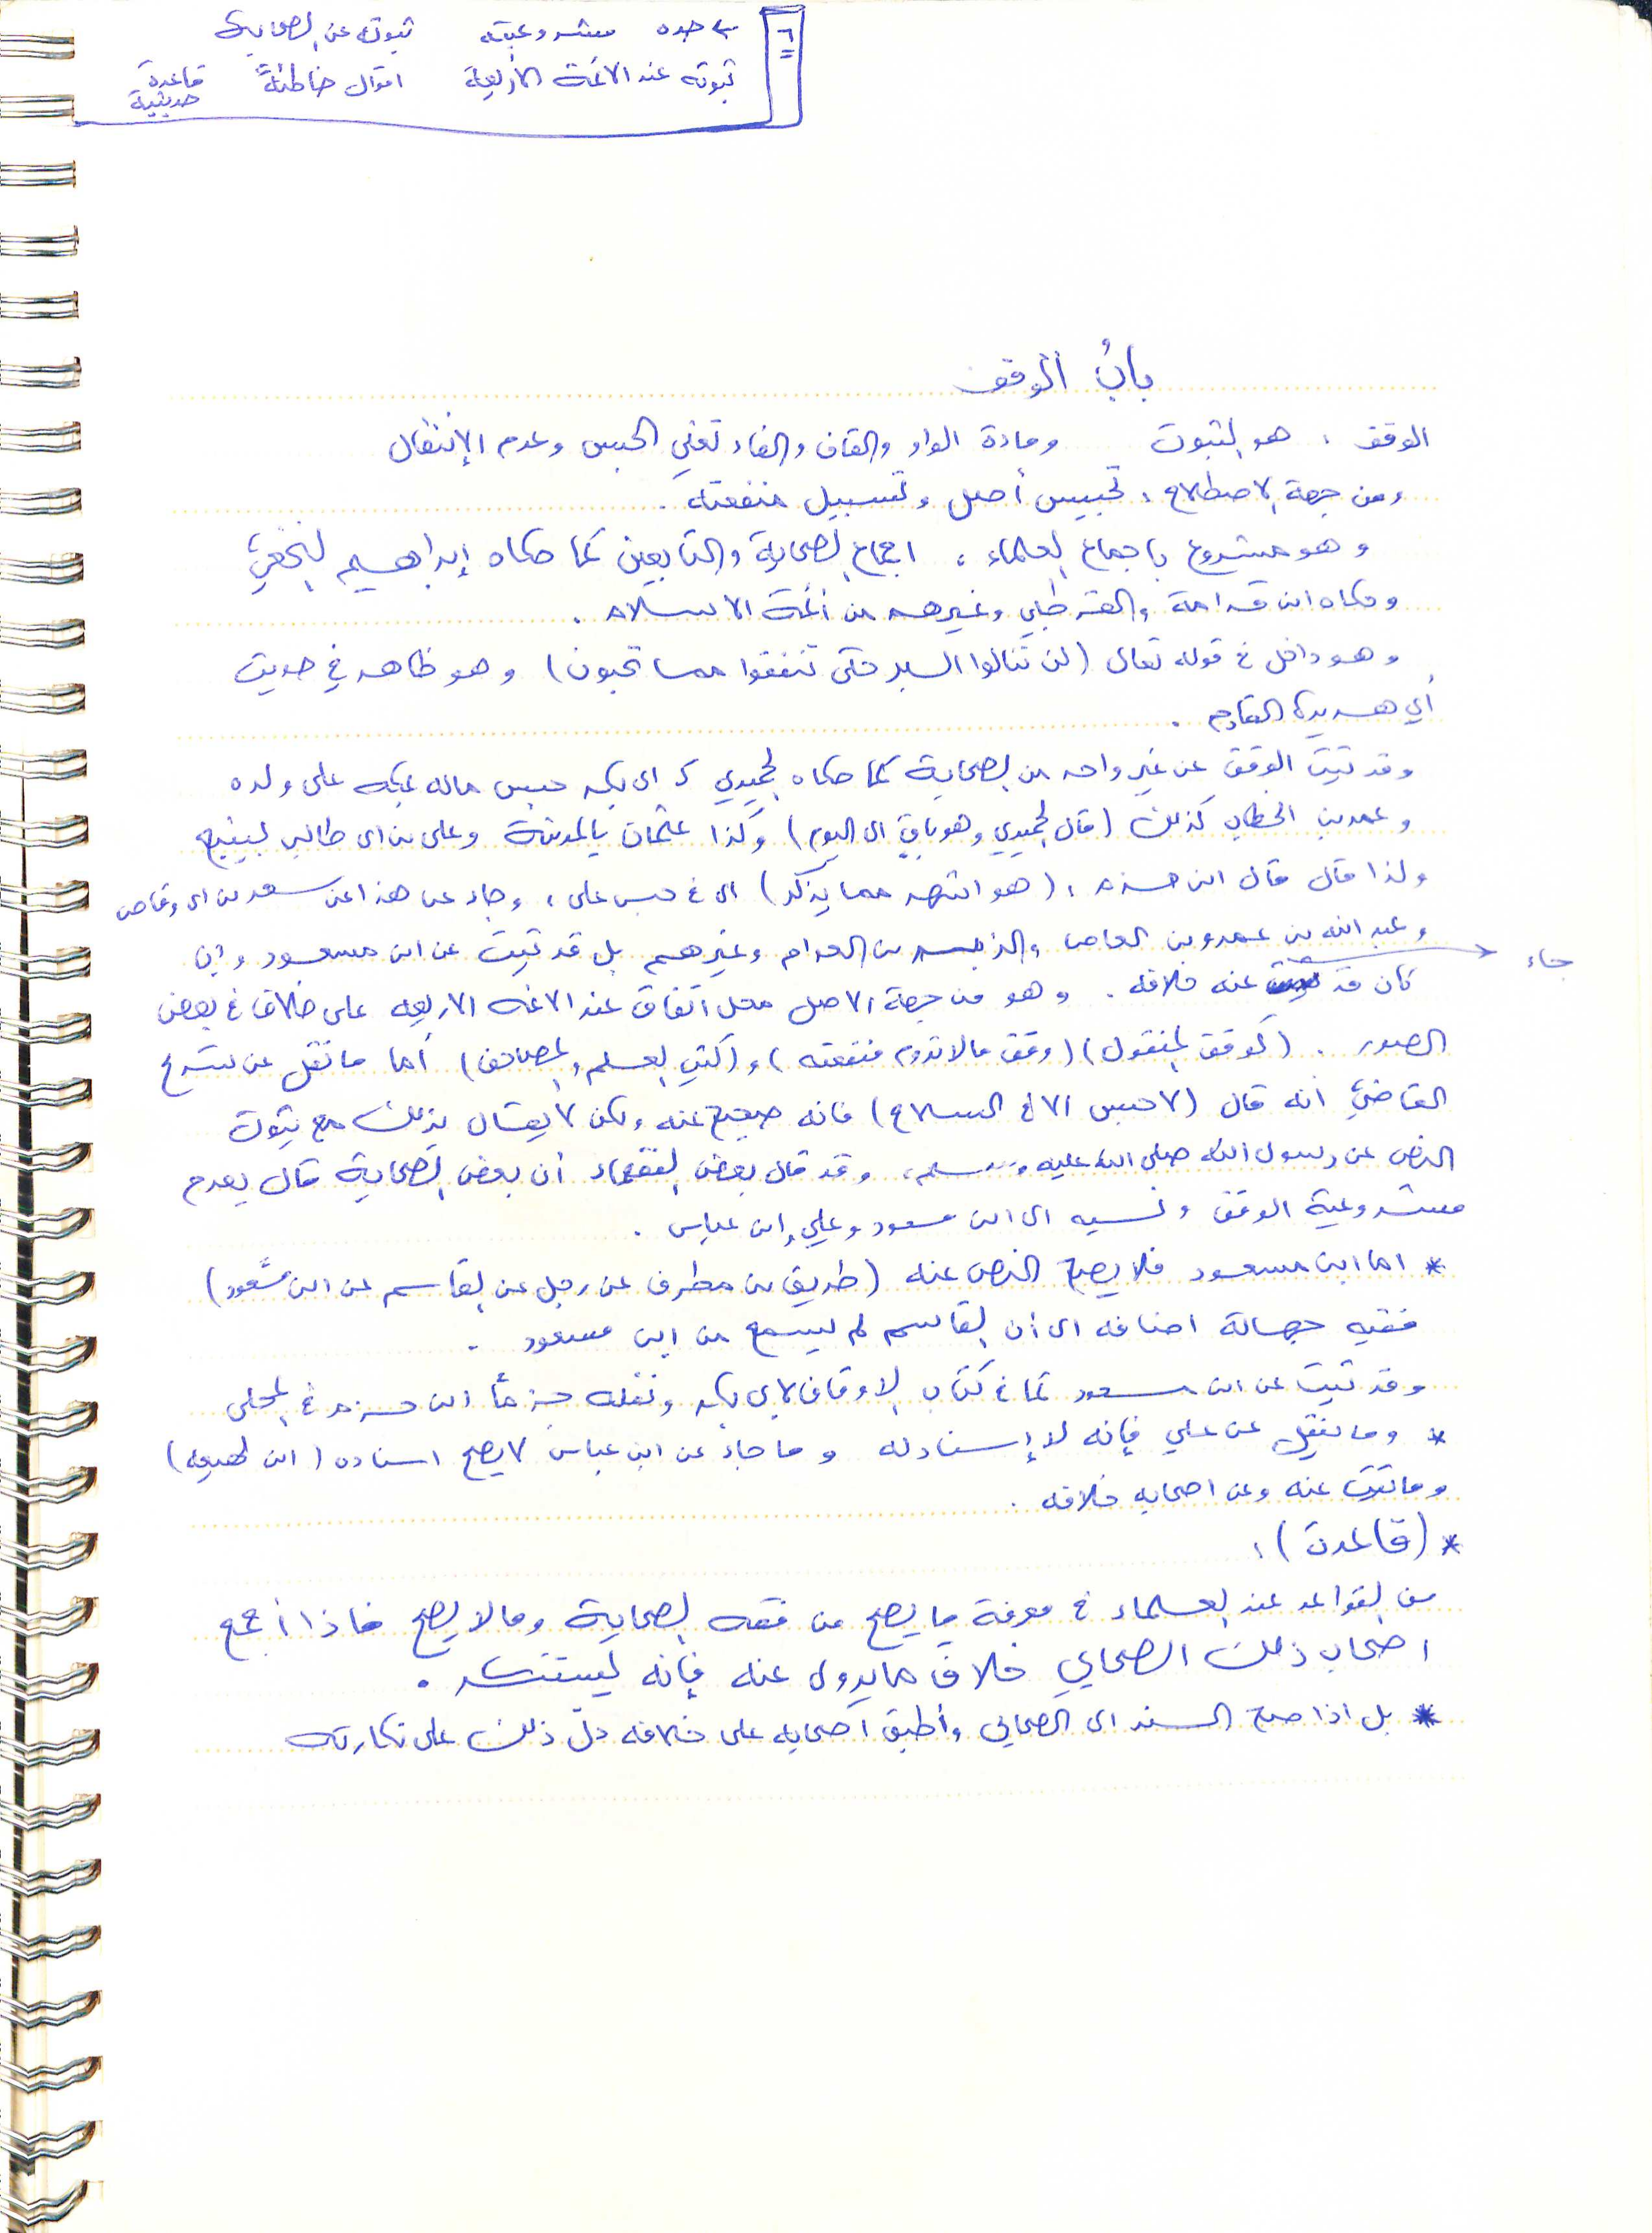 ٦ حده مشروعيته ثبوته عن الصحابة
ثبوته عند الائمة الأربعة اقوال خاطئة قاعدة حديثية
بابُ الوقف
الوقف : هو الثبوت ومادة الواو والقاف والفاء تعني الحبس وعدم الإنتقال
ومن جهة الاصطلاح : تحبيس أصل وتسبيل منفعته .
وهو مشروع باجماع العلماء ، اجماع الصحابة والتابعين كما حكاه إبراهيم النخعي
وحكاه ابن قدامة والقرطبي وغيرهم من أئمة الاسلام .
وهو داخل في قوله تعالى (لن تنالوا البر حتى تنفقوا مما تحبون) وهو ظاهر في حديث
أبي هريرة القادم .
وقد ثبت الوقف عن غير واحد من الصحابة كما حكاه الحميدي كـ ابي بكر حبس ماله بمكه على ولده
وعمر بن الخطاب كذلك (قال الحميدي وهو باقٍ الى اليوم) وكذا عثمان بالمدينة وعلي بن ابي طالب بينبع
ولذا قال قال ابن حزم : (هو اشهر مما يذكر) اي في حبس علي ، وجاء عن هذا عن سعد بن ابي وقاص
وعبد الله بن عمرو بن العاص والزبير بن العوام وغيرهم بل قد ثبت عن ابن مسعود وإن
كان قد جاء عنه خلافه . وهو من جهة الاصل محل اتفاق عند الائمه الاربعه على خلاف في بعض
الصور . (كوقف المنقول) (وقف مالا تدوم منفعته) و (كتب العلم والمصاحف) أما ما نقل عن شريح
القاضي انه قال (لا حبس الا في السلاح) فانه صحيح عنه ولكن لا يقال بذلك مع ثبوت
النص عن رسول الله صلى الله عليه وسلم ، وقد قال بعض الفقهاء أن بعض الصحابة قال بعدم
مشروعية الوقف ونسبه الى ابن مسعود وعلي وابن عباس .
* اما ابن مسعود فلا يصح النص عنه (طريق بن مطرف عن رجل عن القاسم عن ابن مسعود)
ففيه جهالة اضافه الى أن القاسم لم يسمع من ابن مسعود .
وقد ثبت عن ابن مسعود كما في كتاب الاوقاف لابي بكر ونقله جزماً ابن حزم في المحلى
* وما نقل عن علي فإنه لا إسناد له وما جاء عن ابن عباس لا يصح اسناده (ابن لهيعه)
وما ثبت عنه وعن اصحابه خلافه .
* (قاعدة) :
من القواعد عند العلماء في معرفة ما يصح من فقه الصحابة وما لا يصح فاذا أجمع
اصحاب ذلك الصحابي خلاف ما يروى عنه فإنه يستنكر .
* بل اذا صح السند الى الصحابي وأطبق أصحابه على خلافه دلّ ذلك على نكارته